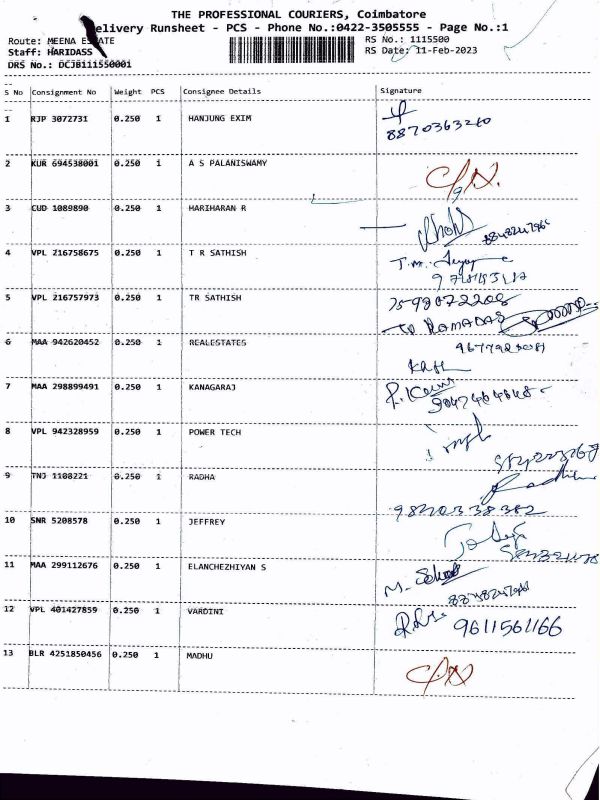 THE PROFESSIONAL COURIERS, Coimbatore
elivery Runsheet - PCS - Phone No.:0422-3505555 - Page No.:1
Route: MEENA ES ATE
RS No.: 1115500
Staff: HARIDASS
RS Date: 11-Feb-2023
DRS No.: DCJB111550001
S No Consignment No Weight PCS Consignee Details Signature
1 RJP 3072731 0.250 1 HANJUNG EXIM
8870363260
2 KUR 694538001 0.250 1 A S PALANISWAMY
3 CUD 1089890 0.250 1 HARIHARAN R
4 VPL 216758675 0.250 1 T R SATHISH
5 VPL 216757973 0.250 1 TR SATHISH
6 MAA 942620452 0.250 1 REALESTATES
7 MAA 298899491 0.250 1 KANAGARAJ
8 VPL 942328959 0.250 1 POWER TECH
9 TNJ 1108221 0.250 1 RADHA
10 SNR 5208578 0.250 1 JEFFREY
11 MAA 299112676 0.250 1 ELANCHEZHIYAN S
12 VPL 401427859 0.250 1 VARDINI
9611561166
13 BLR 4251850456 0.250 1 MADHU